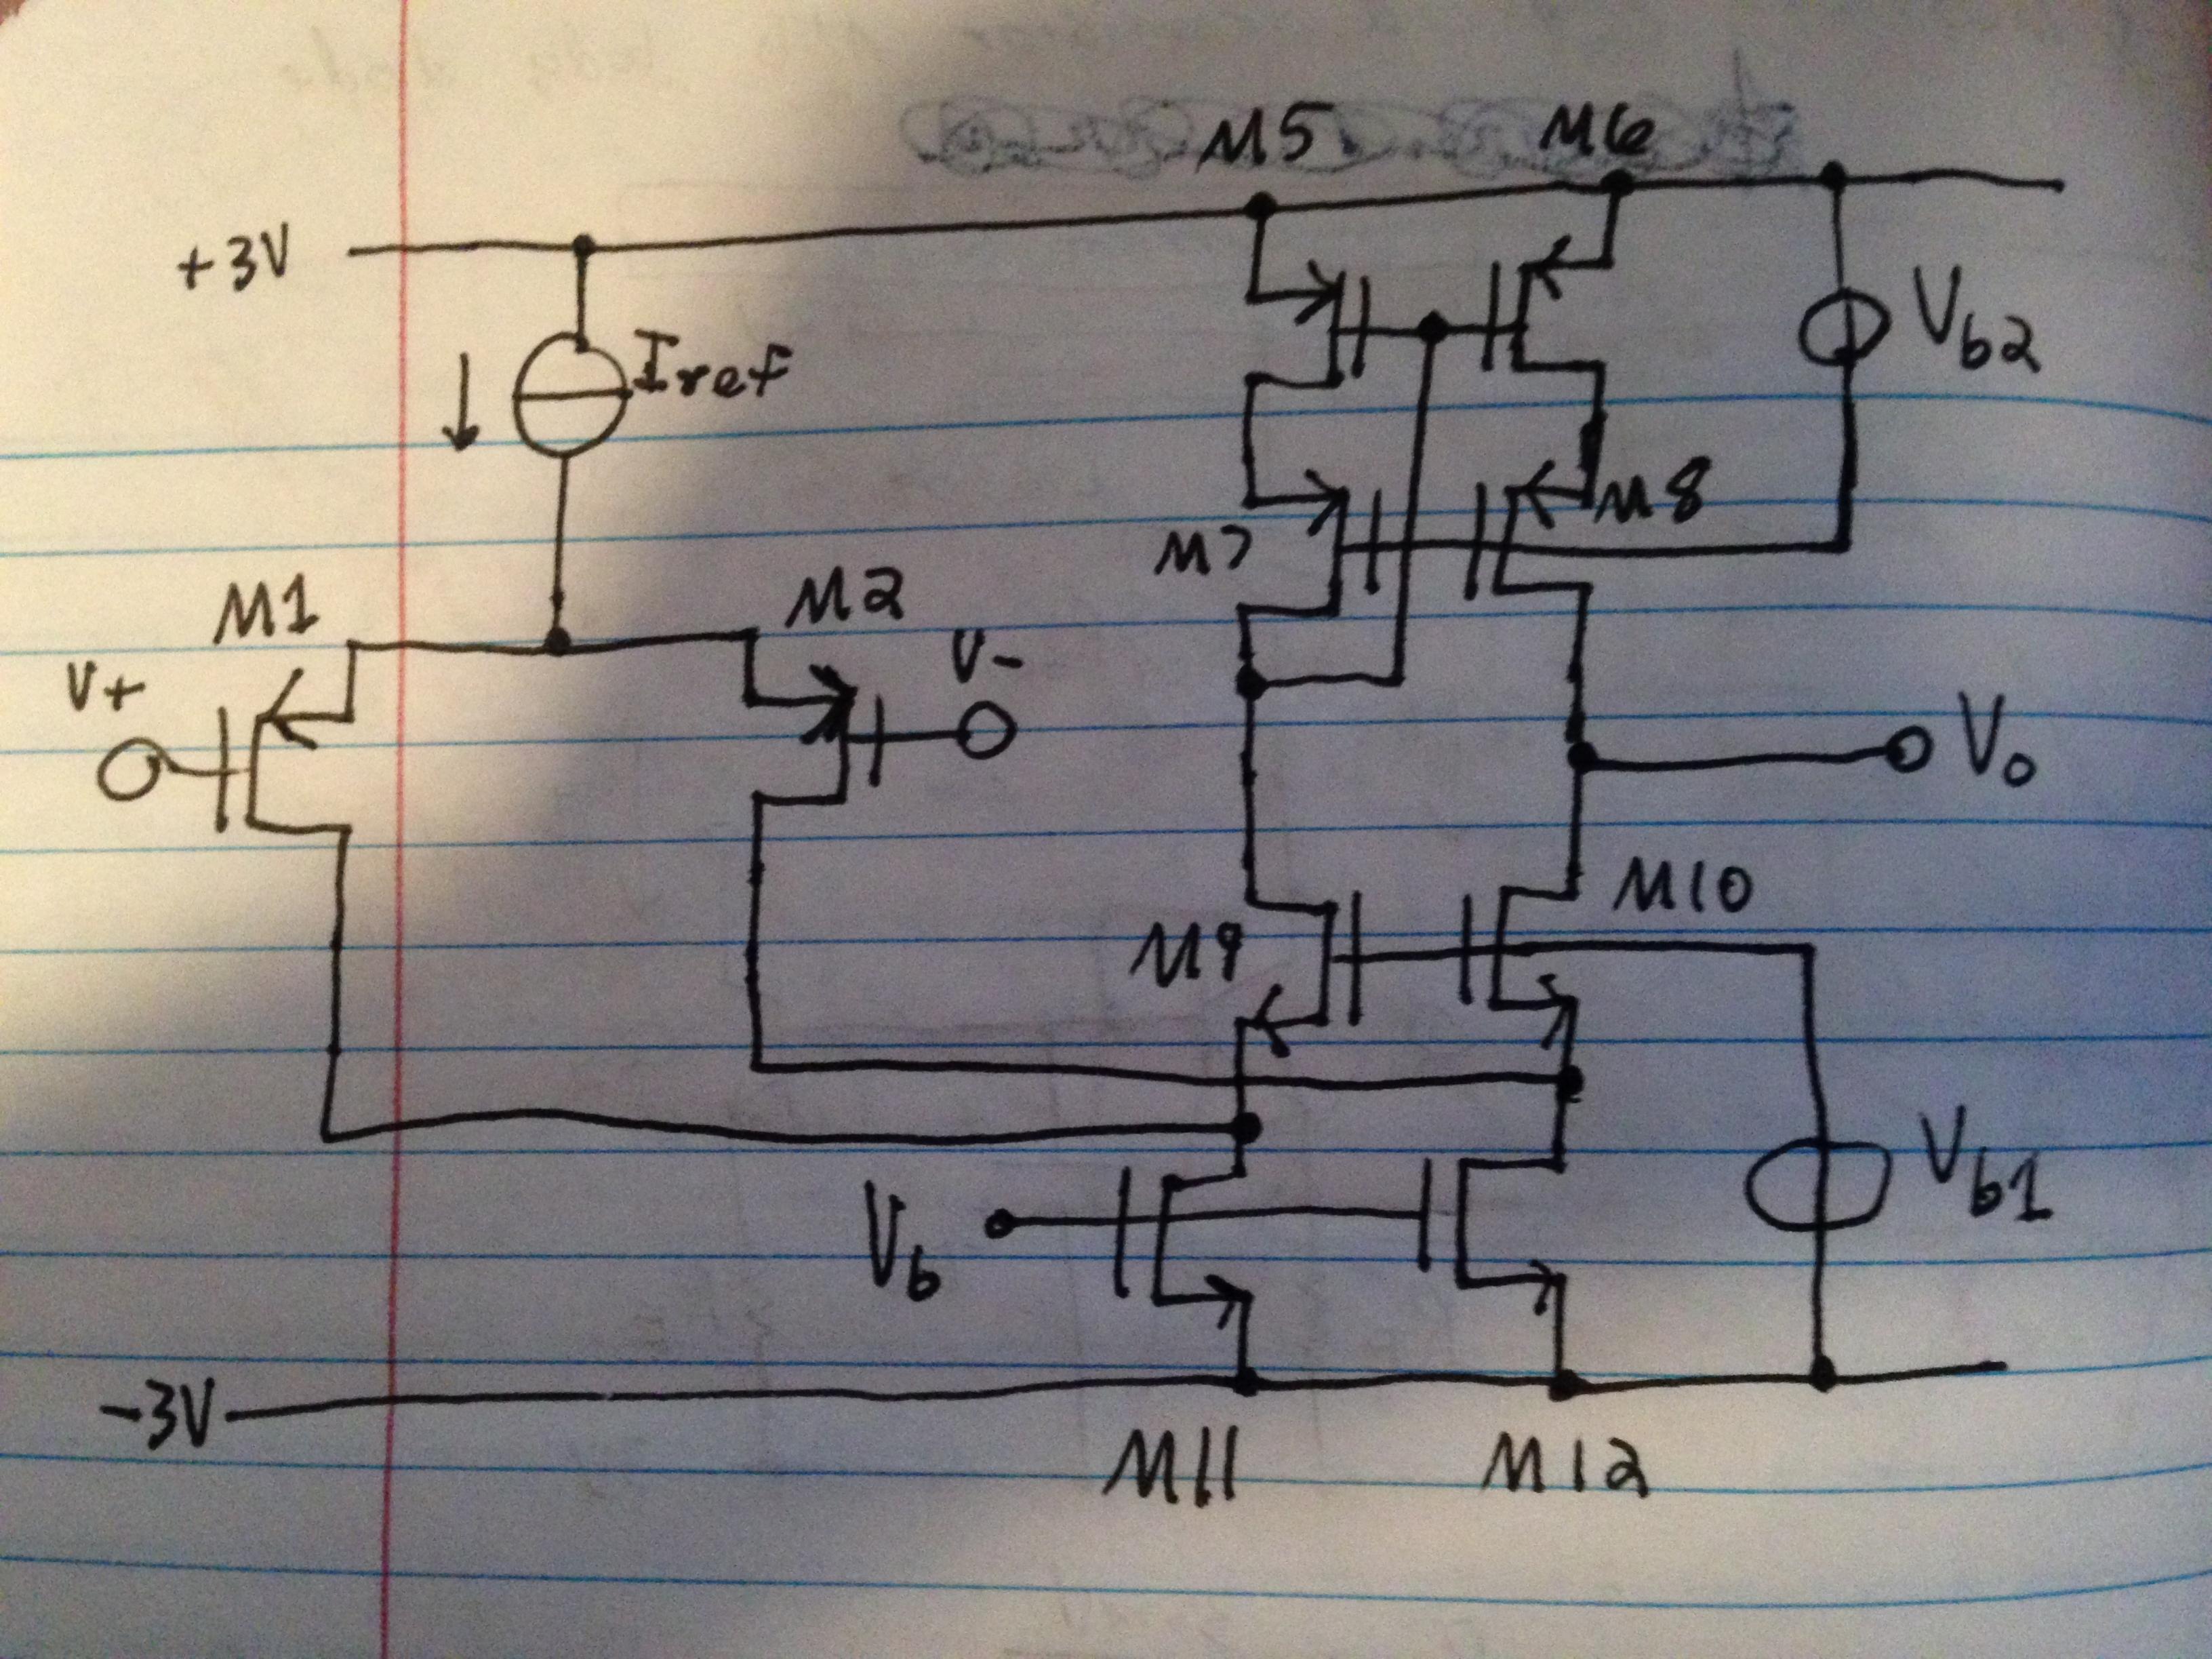 M5 M6
+3V
Iref
Vb2
M8
M7
M1 M2
V+ V-
Vo
M10
M9
Vb1
Vb
-3V
M11 M12